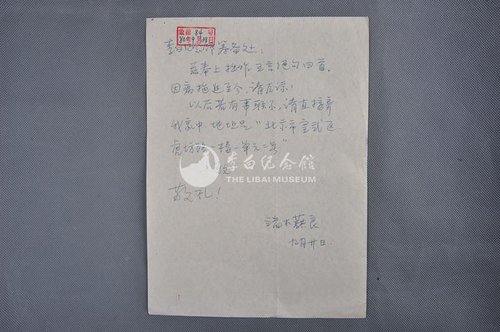 李白纪念馆筹备处：
兹奉上拙作五言绝句四首。
因病拖延至今，请原谅！
以后若有事联系，请直接寄
我家中 地址是“北京市宣武区
虎坊路 楼一单元二号”
李白纪念馆
THE LIBAI MUSEUM
敬礼！
端木蕻良
九月廿日